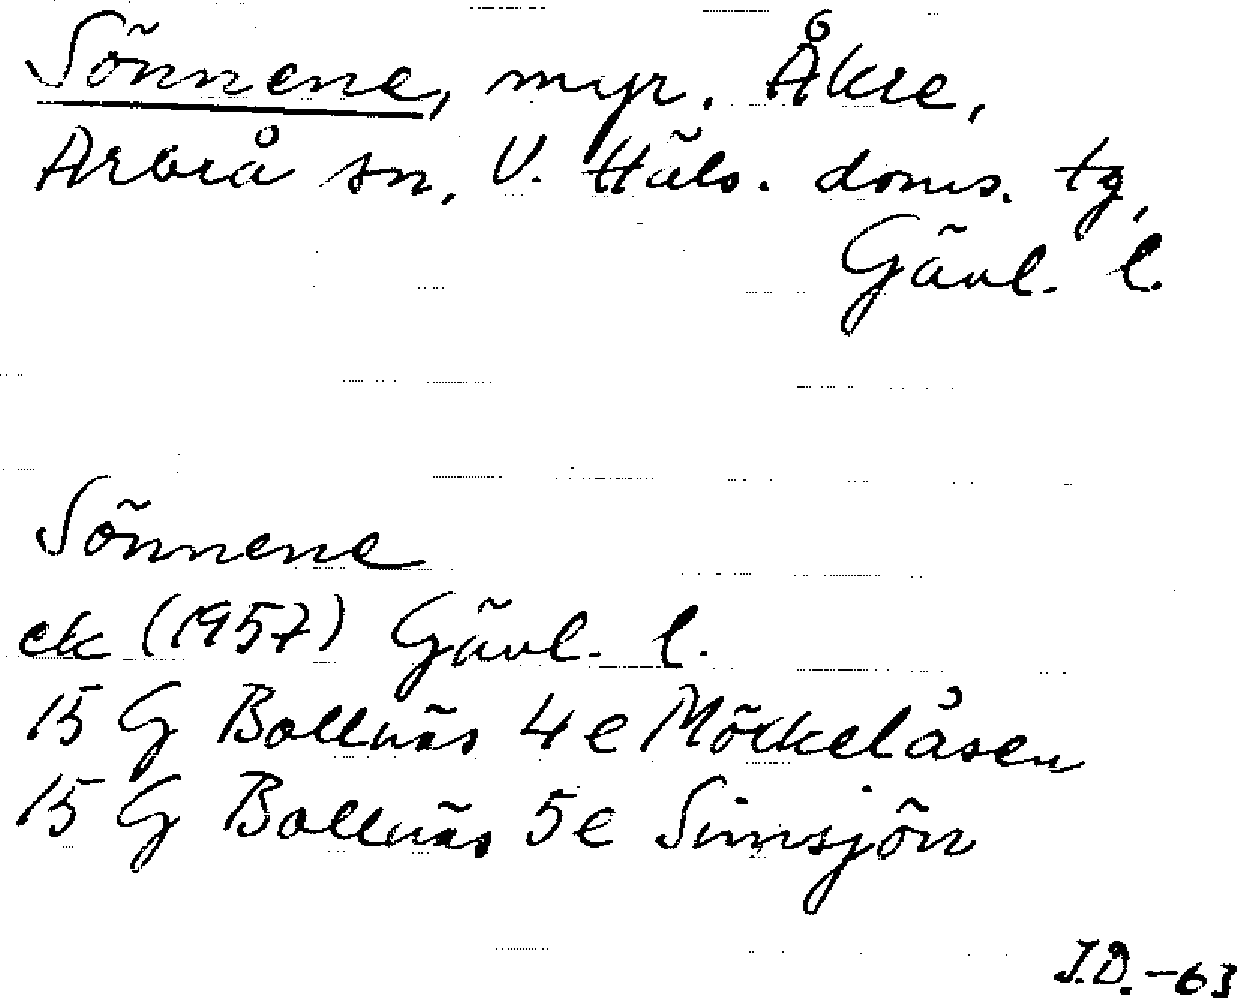 Sönnene, myr. Åkre,
Arbrå sn, V. Häls. doms. tg,
Gävl. l.
Sönnene
ek (1957) Gävl. l.
15 G Bollnäs 4 e Mörkelåsen
15 G Bollnäs 5 e Simsjön
J.D. -63